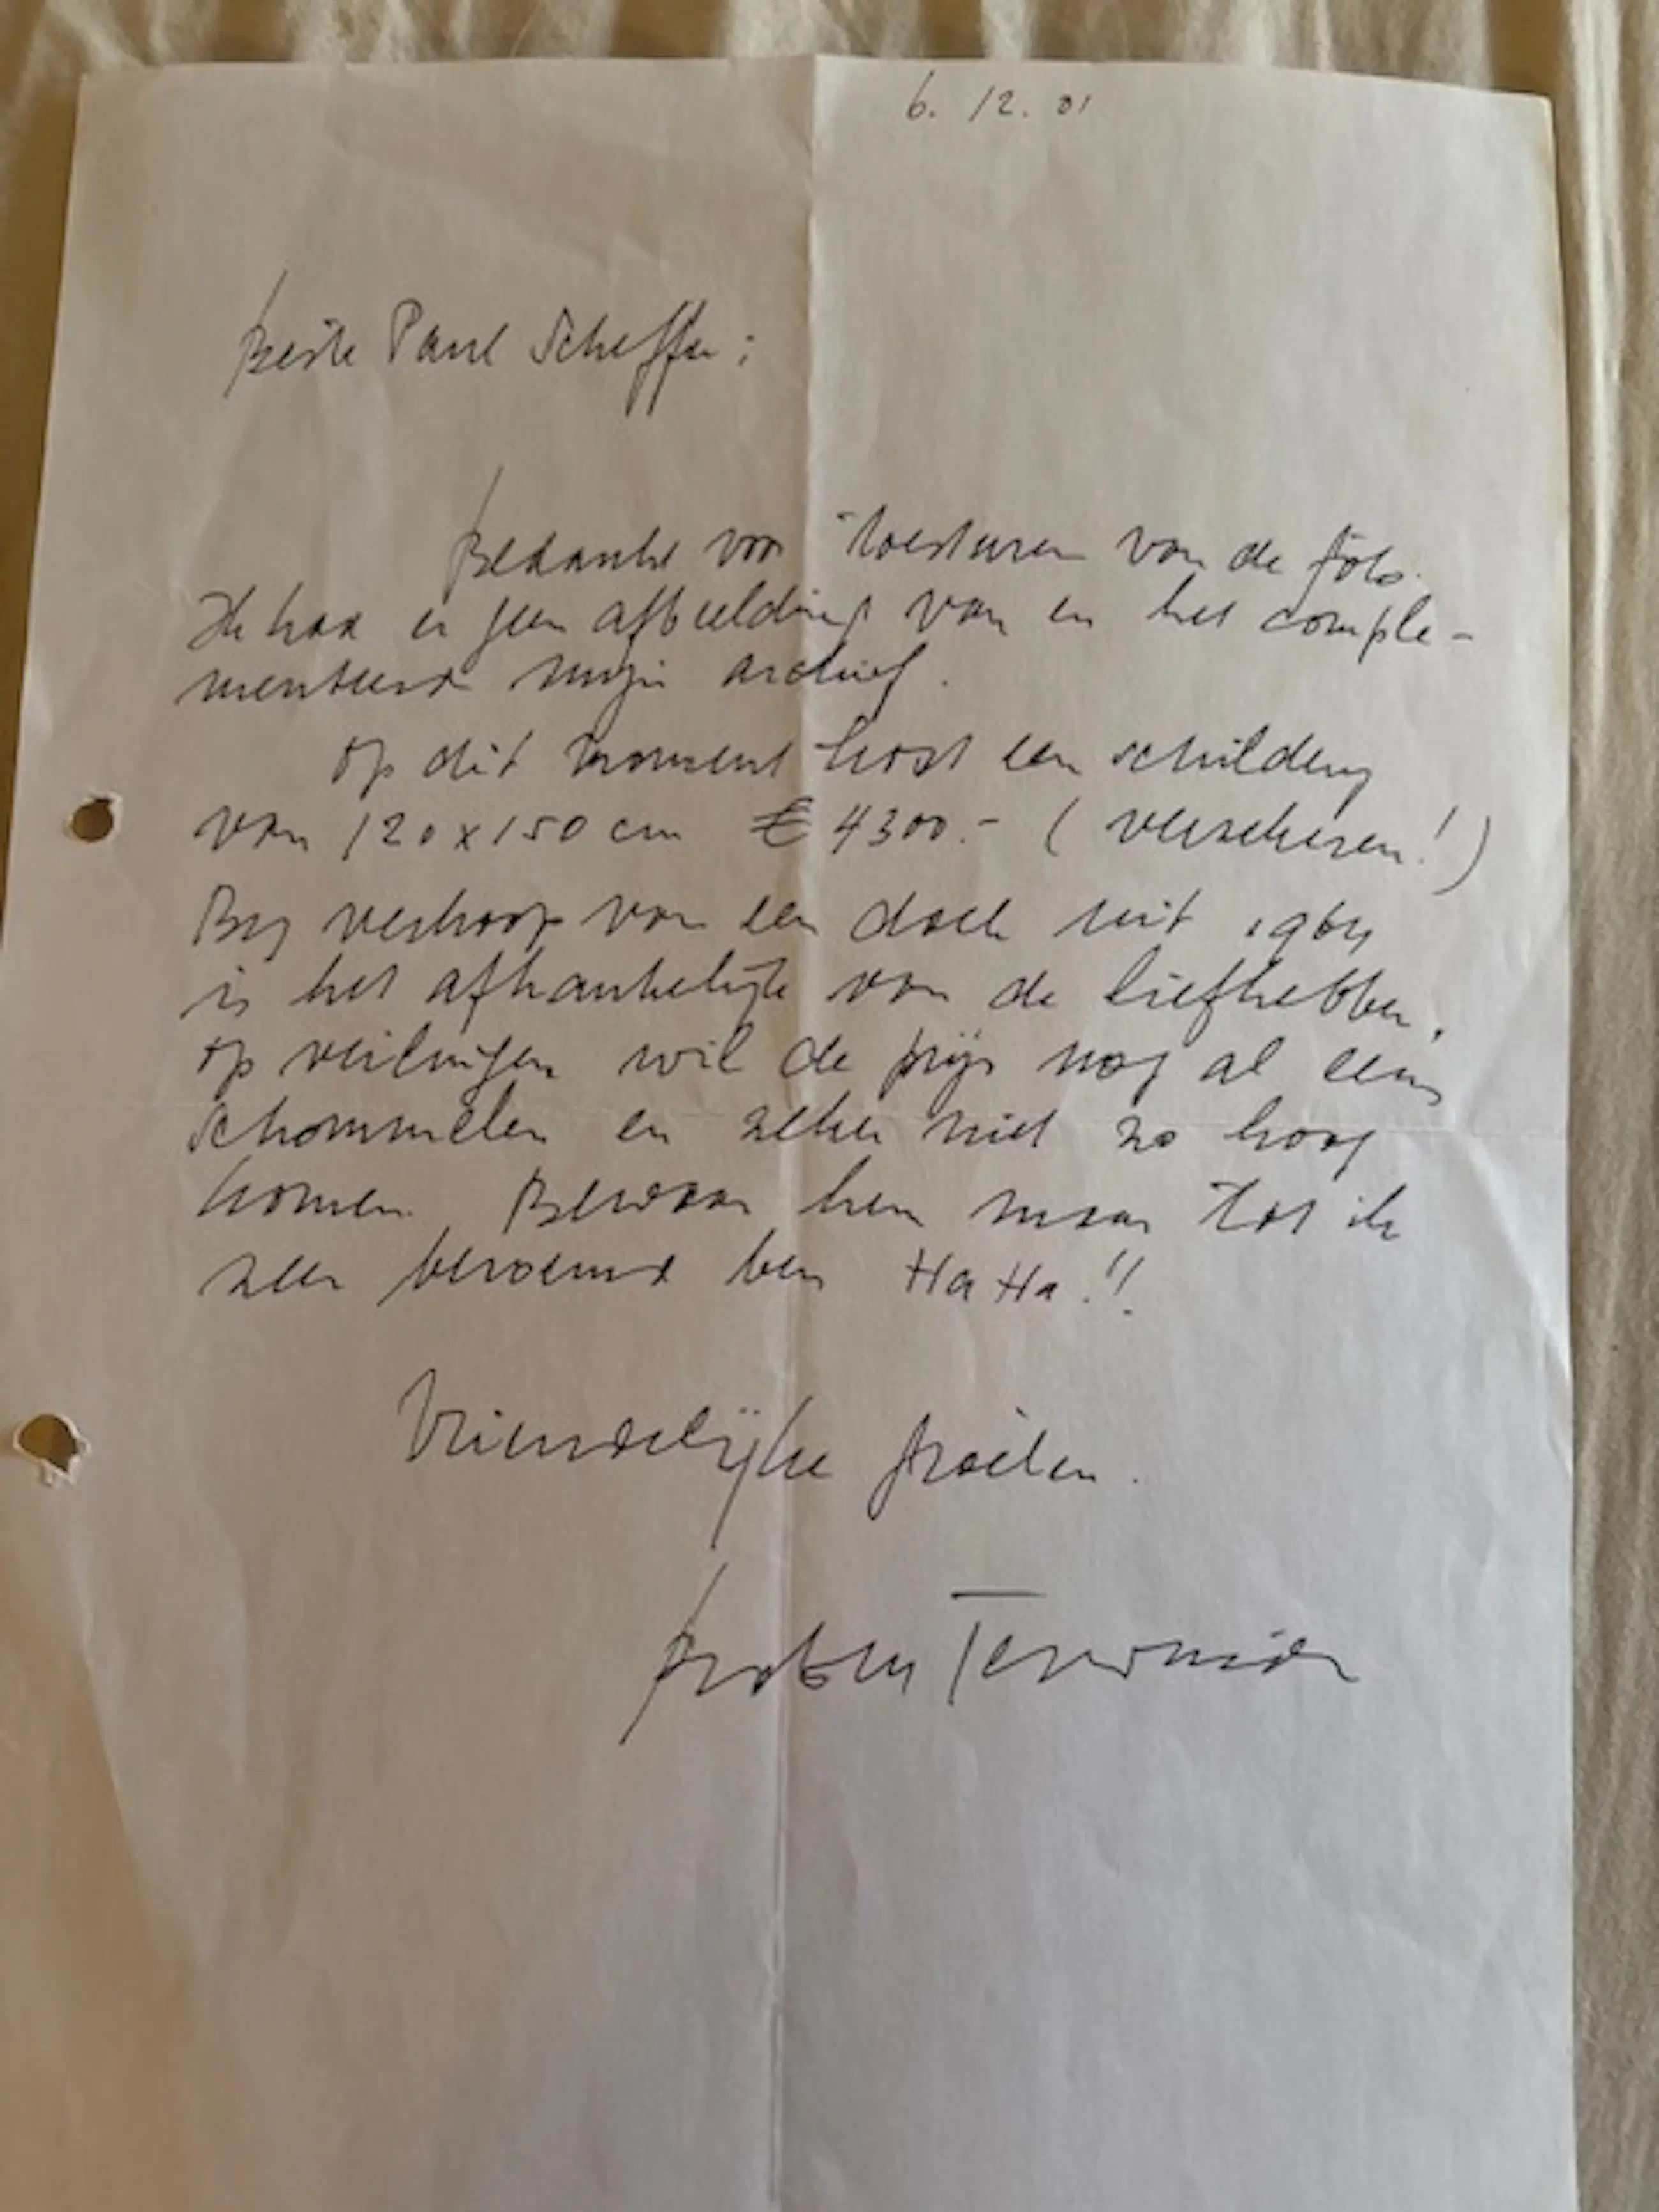 6. 12. 01
Beste Paul Scheffer:
Bedankt voor toesturen van de foto.
Ik had er geen afbeelding van en het comple-
menteerd mijn archief.
Op dit moment kost een schildery
van 120 x 150 cm € 4300.- ( verzekeren! )
By verkoop van een doek uit 1964
is het afhankelijk van de liefhebber,
op veilingen wil de prijs nog al eens
schommelen en zeker niet zo hoog
komen. Bewaar hem maar tot ik
zeer beroemd ben Ha Ha!!
Vriendelijke groeten.